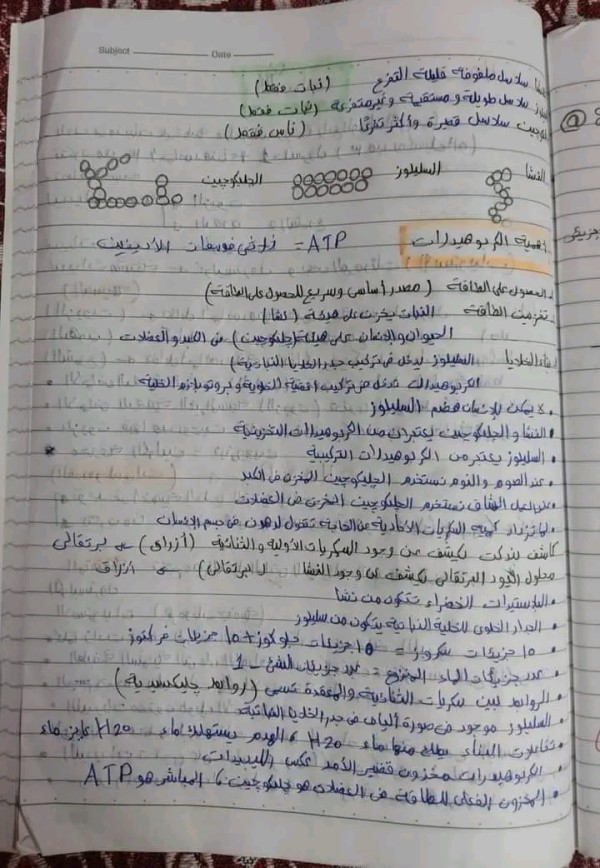 Subject Date
النشا سلاسل ملفوفة قليلة التفرع (نبات فقط)
سلاسل طويلة ومستقيمة وغير متفرعة (نبات فقط)
سلاسل قصيرة وأكثر تفرعًا (ناس فقط)
النشا السليلوز الجليكوجين
اهمية الكربوهيدرات ATP = ثلاثي فوسفات الأدينين
الحصول على الطاقة (مصدر أساسي وسريع للحصول على الطاقة)
تخزين الطاقة النبات يخزن على هيئة (نشا)
الحيوان والإنسان على هيئة (جليكوجين) في الكبد والعضلات
بناء الخلايا السليلوز يدخل في تركيب جدر الخلايا النباتية)
الكربوهيدرات تدخل في تركيب اغشية الخلوية وبروتوبلازم الخلية
• لا يمكن للإنسان هضم السليلوز
• النشا والجليكوجين يعتبران من الكربوهيدرات التخزينية
• السليلوز يعتبر من الكربوهيدرات التركيبية
• عند الصوم والنوم نستخدم الجليكوجين المخزن في الكبد
• عند العمل الشاق نستخدم الجليكوجين المخزن في العضلات
• لما تزداد كمية السكريات الأحادية عن الحاجة تتحول لدهون في جسم الإنسان
كاشف بندكت نكشف عن وجود السكريات الأولية والثنائية (أزرق) ← برتقالي
محلول اليود البرتقالي نكشف عن وجود النشا (برتقالي) ← ازرق
• البلاستيدات الخضراء تتكون من نشا
• الجدار الخلوي للخلية النباتية يتكون من سليلوز
• 10 جزيئات سكروز = 10 جزيئات جلوكوز + 10 جزيئات فركتوز
• عدد جزيئات الماء المنزوع = عدد جزيئات - 1
• الروابط لبين سكريات الثنائية والمعقدة تسمى (روابط جليكسيدية)
• السليلوز موجود في صورة ألياف في جدر الخلايا النباتية
• تفاعلات البناء يطلع منها ماء H2O، الهدم يستهلك ماء H2O عايز ماء
• الكربوهيدرات مخزون قصير الأمد عكس الليبيدات
• المخزون الفعلي للطاقة في العضلات هو جليكوجين، المباشر هو ATP